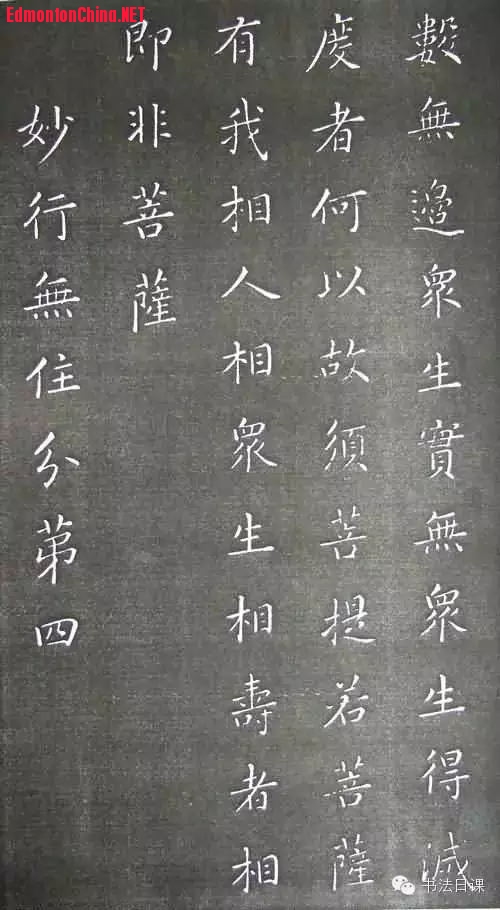 EdmontonChina.NET
數無邊衆生實無衆生得滅
度者何以故須菩提若菩薩
有我相人相衆生相壽者相
即非菩薩
妙行無住分第四
书法日课